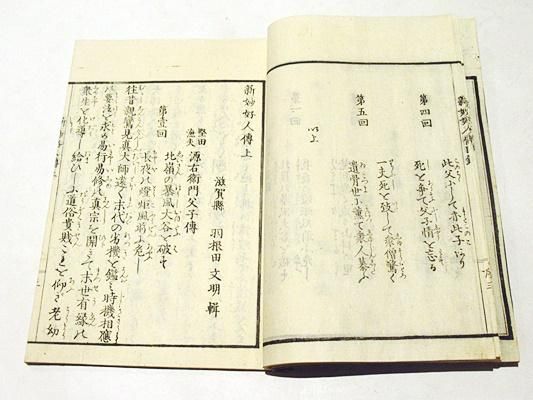 新妙好人傳目録
第四回
此父ふして亦此子あり
死を争て父子情を忘る
第五回
一夫死を残して衆僧驚く
遺骨世ふ薫て衆人慕ふ
以上
新妙好人傳上
滋賀縣 羽根田文明輯
堅田漁夫 源右衛門父子傳
第壹回
北嶺の暴風大谷を破す
長夜の燈炬風前ふ危し
往昔親鸞見真大師遠く末代の劣機を鑑ミ時機相應
の要法を求め易行易修の真宗を開きて末世有縁の
衆生を化導し給ひしより道俗貴賤これを仰ぎ老幼